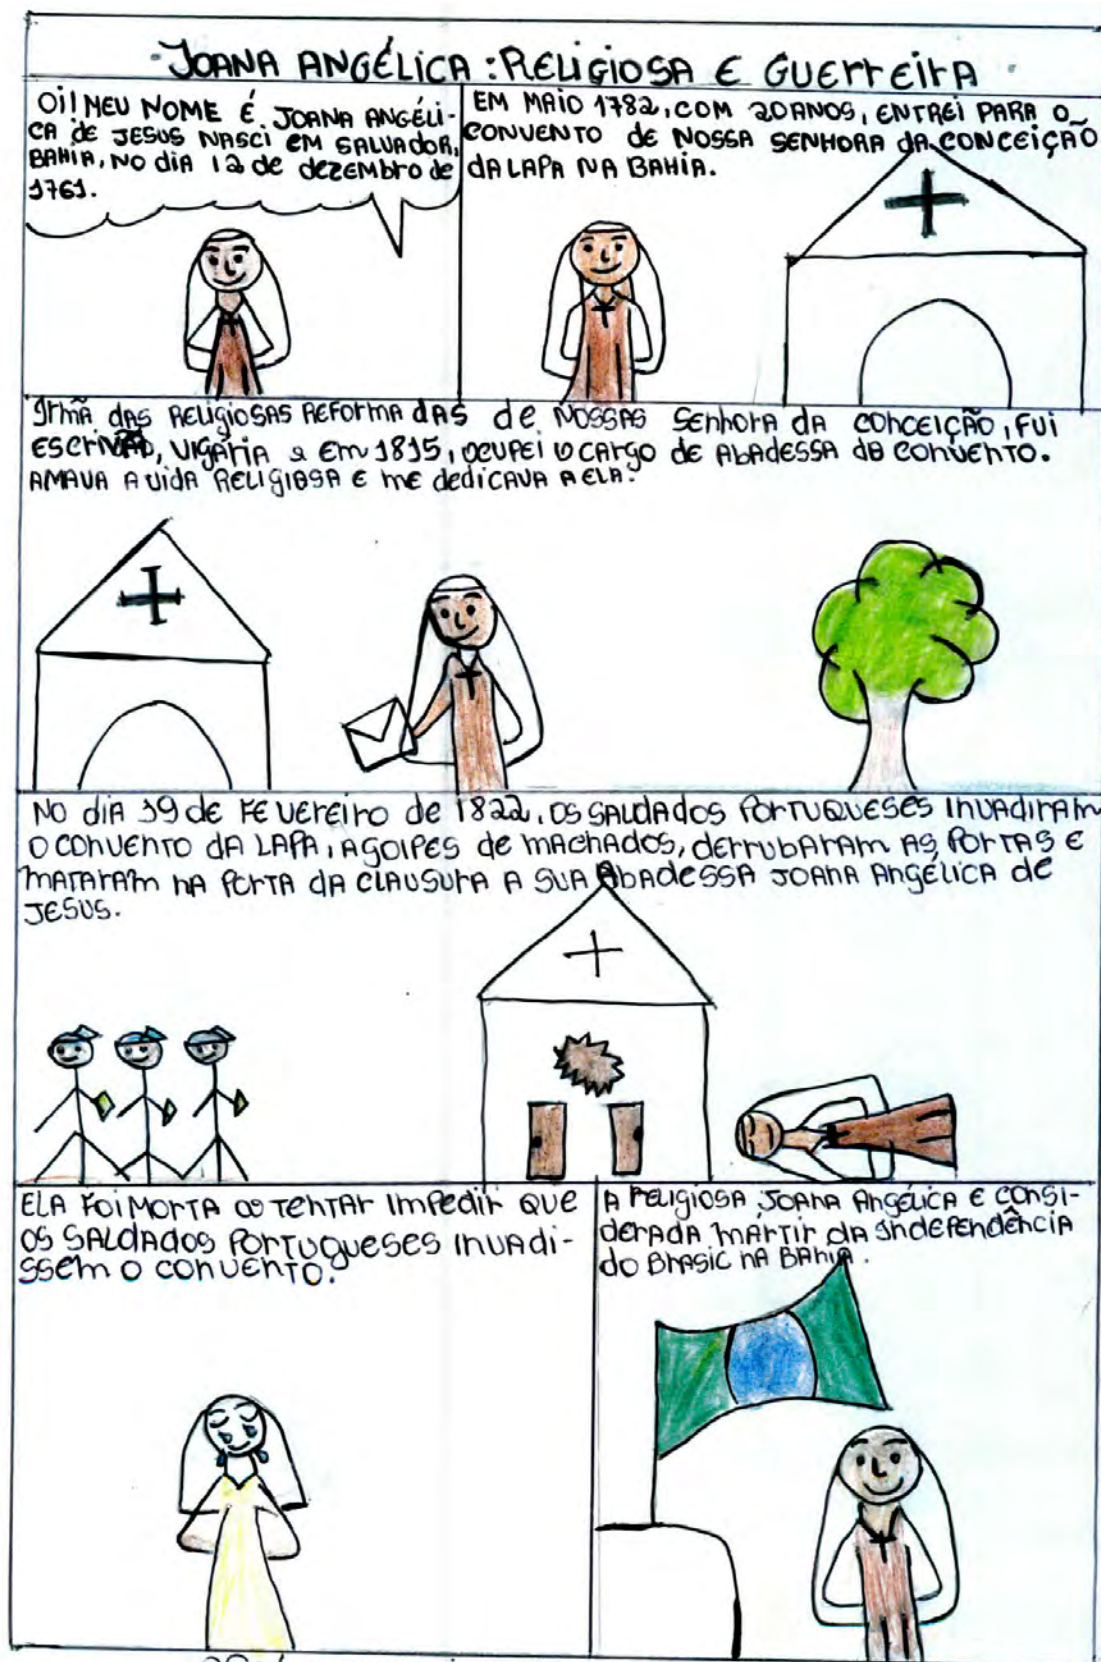 JOANA ANGÉLICA: RELIGIOSA E GUERREIRA
Oi! MEU NOME É JOANA ANGÉLI-
CA de JESUS NASCI EM SALVADOR,
BAHIA, NO diA 12 de dezEMBRO de
1761.
EM MAIO 1782, COM 20 ANOS, ENTREI PARA O
CONVENTO de NOSSA SENHORA DA CONCEIÇÃO
DA LAPA NA BAHIA.
IRMÃ dAS RELIGIOSAS REFORMA dAS de NOSSAS SENHORA DA CONCEIÇÃO, FUI
ESCRIVÃ, VIGÁRIA e Em 1815, OCUPEI O CARGO de ABADESSA dO CONVENTO.
AMAVA A VIDA RELIGIOSA E me dediCAVA A ELA.
NO diA 19 de FEVEREIRO de 1822, OS SALDADOS PORTUQUESES INVADIRAM
O CONVENTO dA LAPA, A GOLPES de MACHADOS, dERRUBARAM AS PORTAS E
MATARAM NA PORTA dA CLAUSURA A SUA AbAdESSA JOANA ANGÉLICA de
JESUS.
ELA FOI MORTA ao TENTAR IMPEDIR QUE
OS SALDADOS PORTUGUESES INVADI-
SSEM O CONVENTO.
A RELIGIOSA JOANA ANGÉLICA E CONSI-
dERADA MARTIR dA INdEPENdÊNCIA
do BRASIC NA BAHIA.